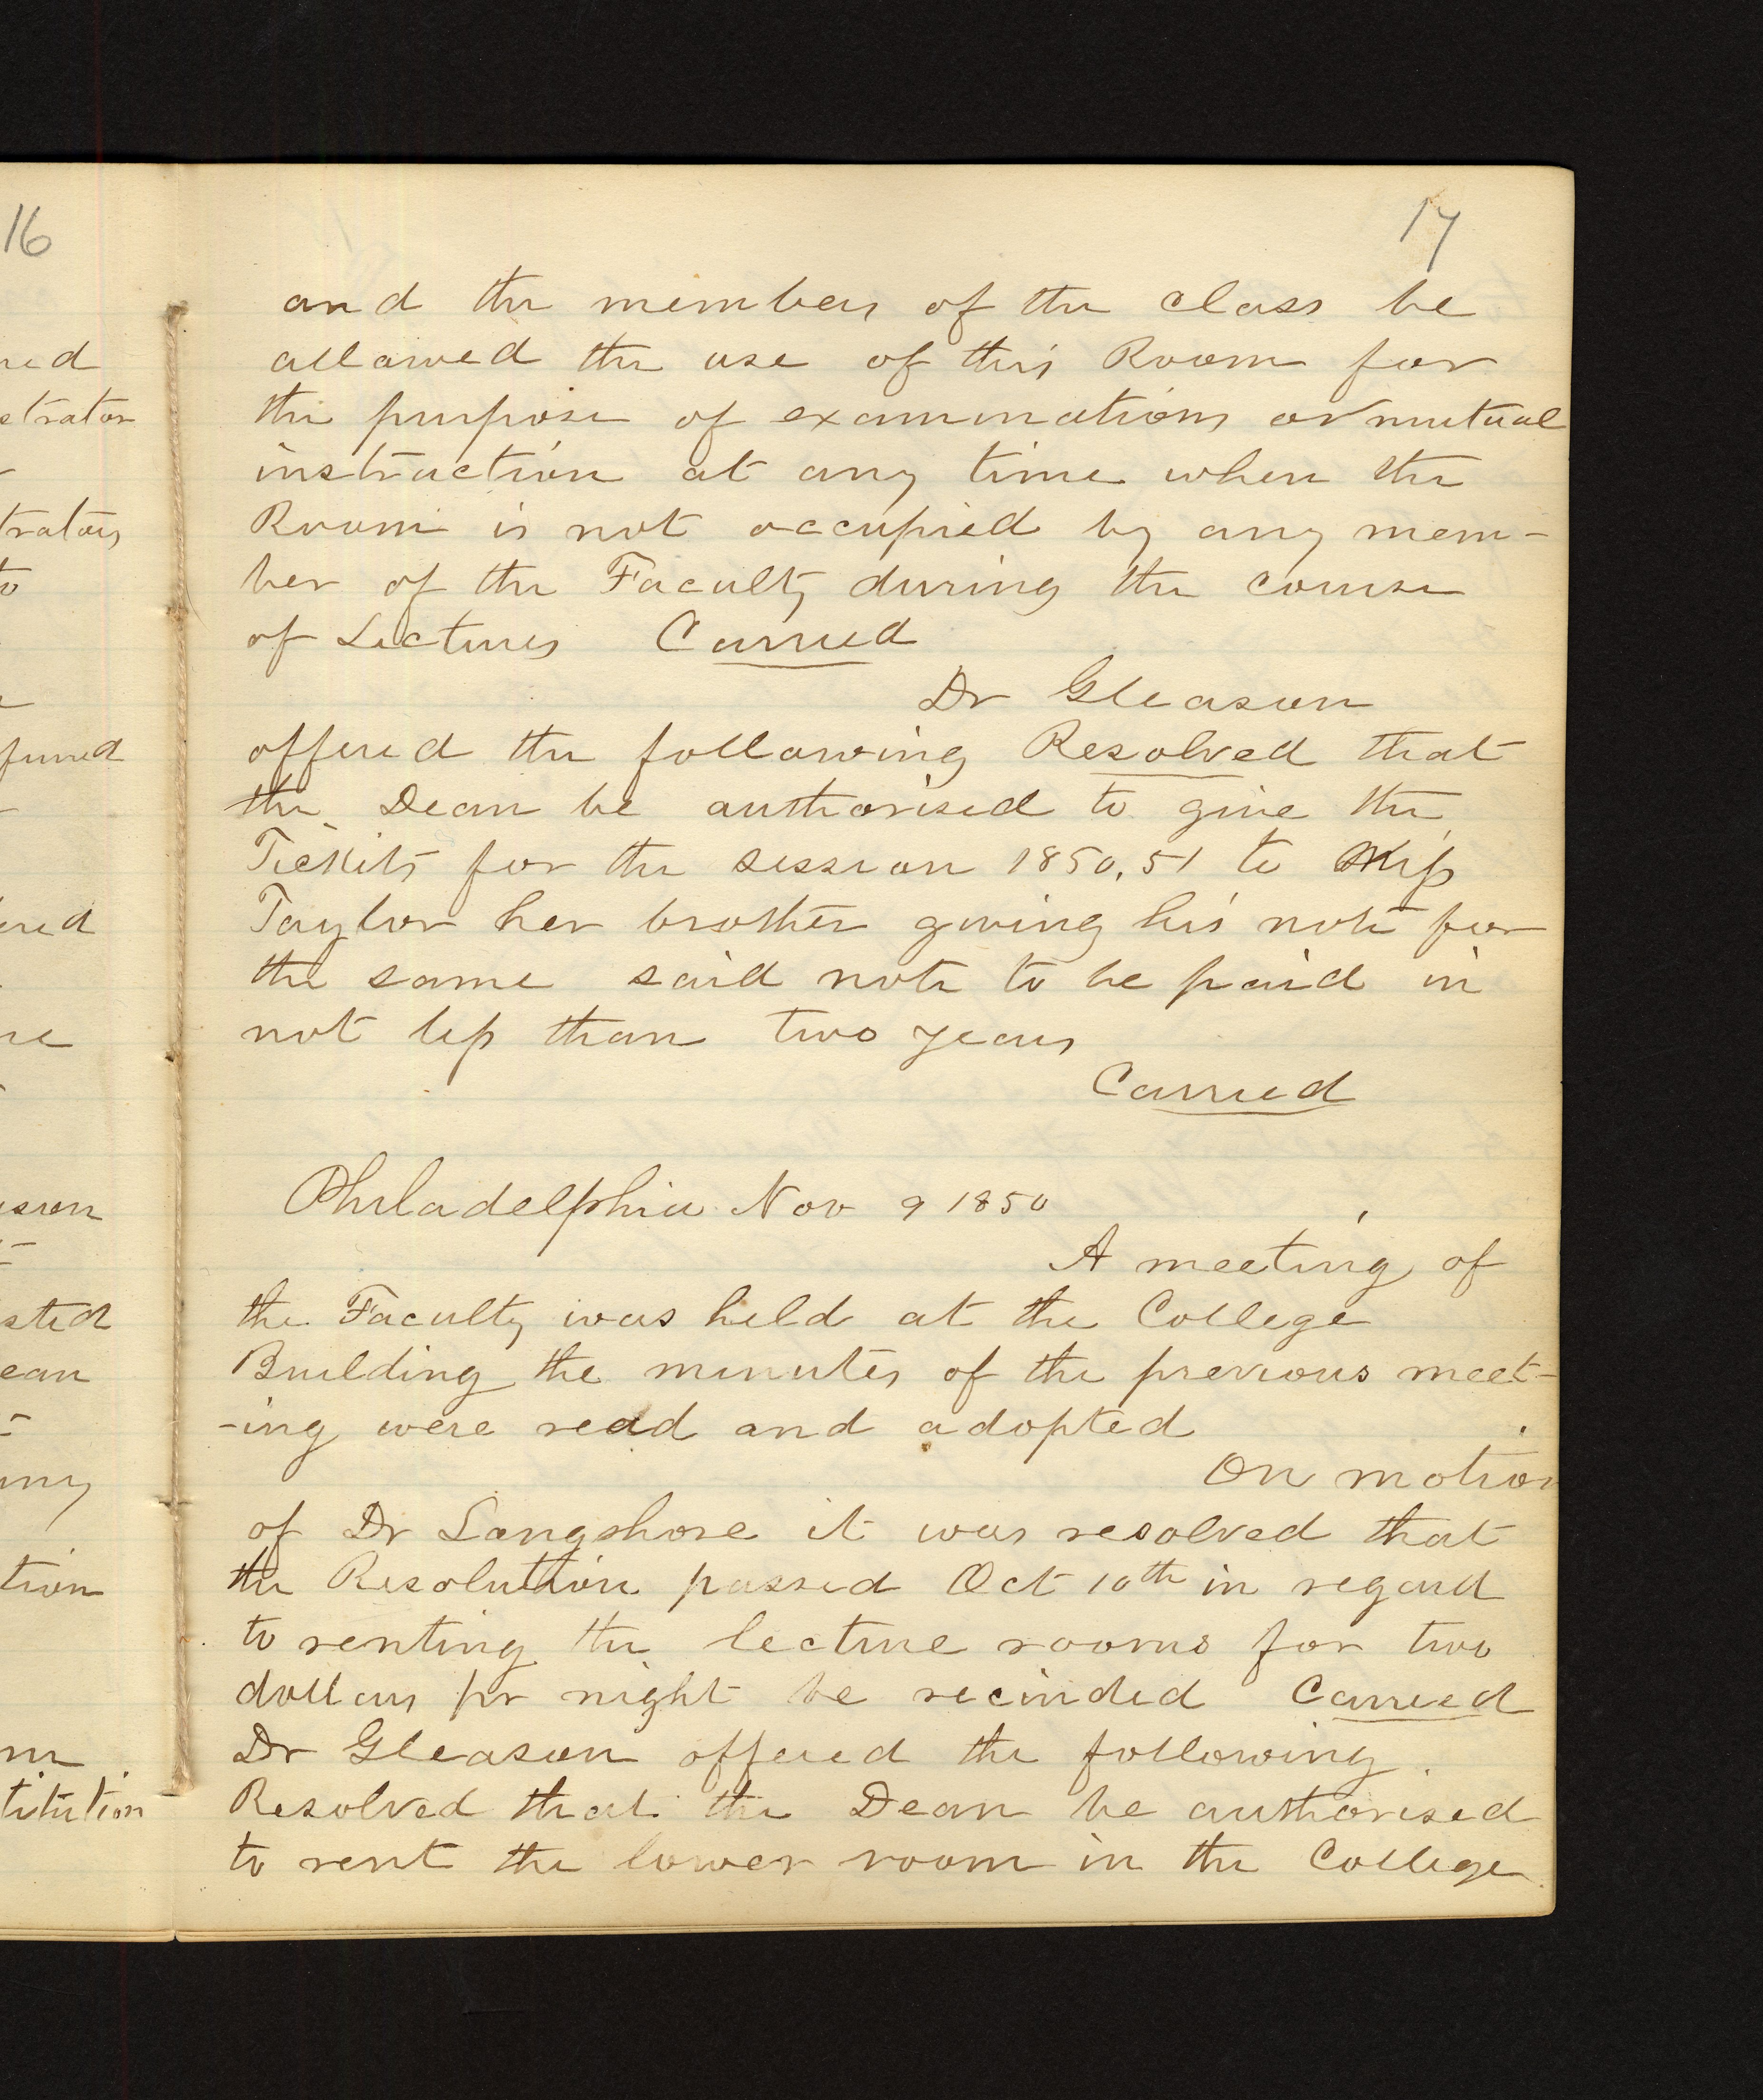 16
17
and the members of the class be
allowed the use of this Room for
the purpose of examinations or mutual
instruction at any time when the
Room is not occupied by any mem-
ber of the Faculty during the course
of Lectures Carried
Dr Gleason
offered the following Resolved that
the Dean be authorised to give the
Tickets for the session 1850,51 to Miss
Taylor her brother giving his note for
the same said note to be paid in
not less than two years
Carried
Philadelphia Nov 9 1850
A meeting of
the Faculty was held at the College
Building the minutes of the previous meet-
-ing were read and adopted
On motion
of Dr Longshore it was resolved that
the Resolution passed Oct 10th in regard
to renting the lecture rooms for two
dollars pr night be recinded Carried
Dr Gleason offered the following
Resolved that the Dean be authorised
to rent the lower room in the College